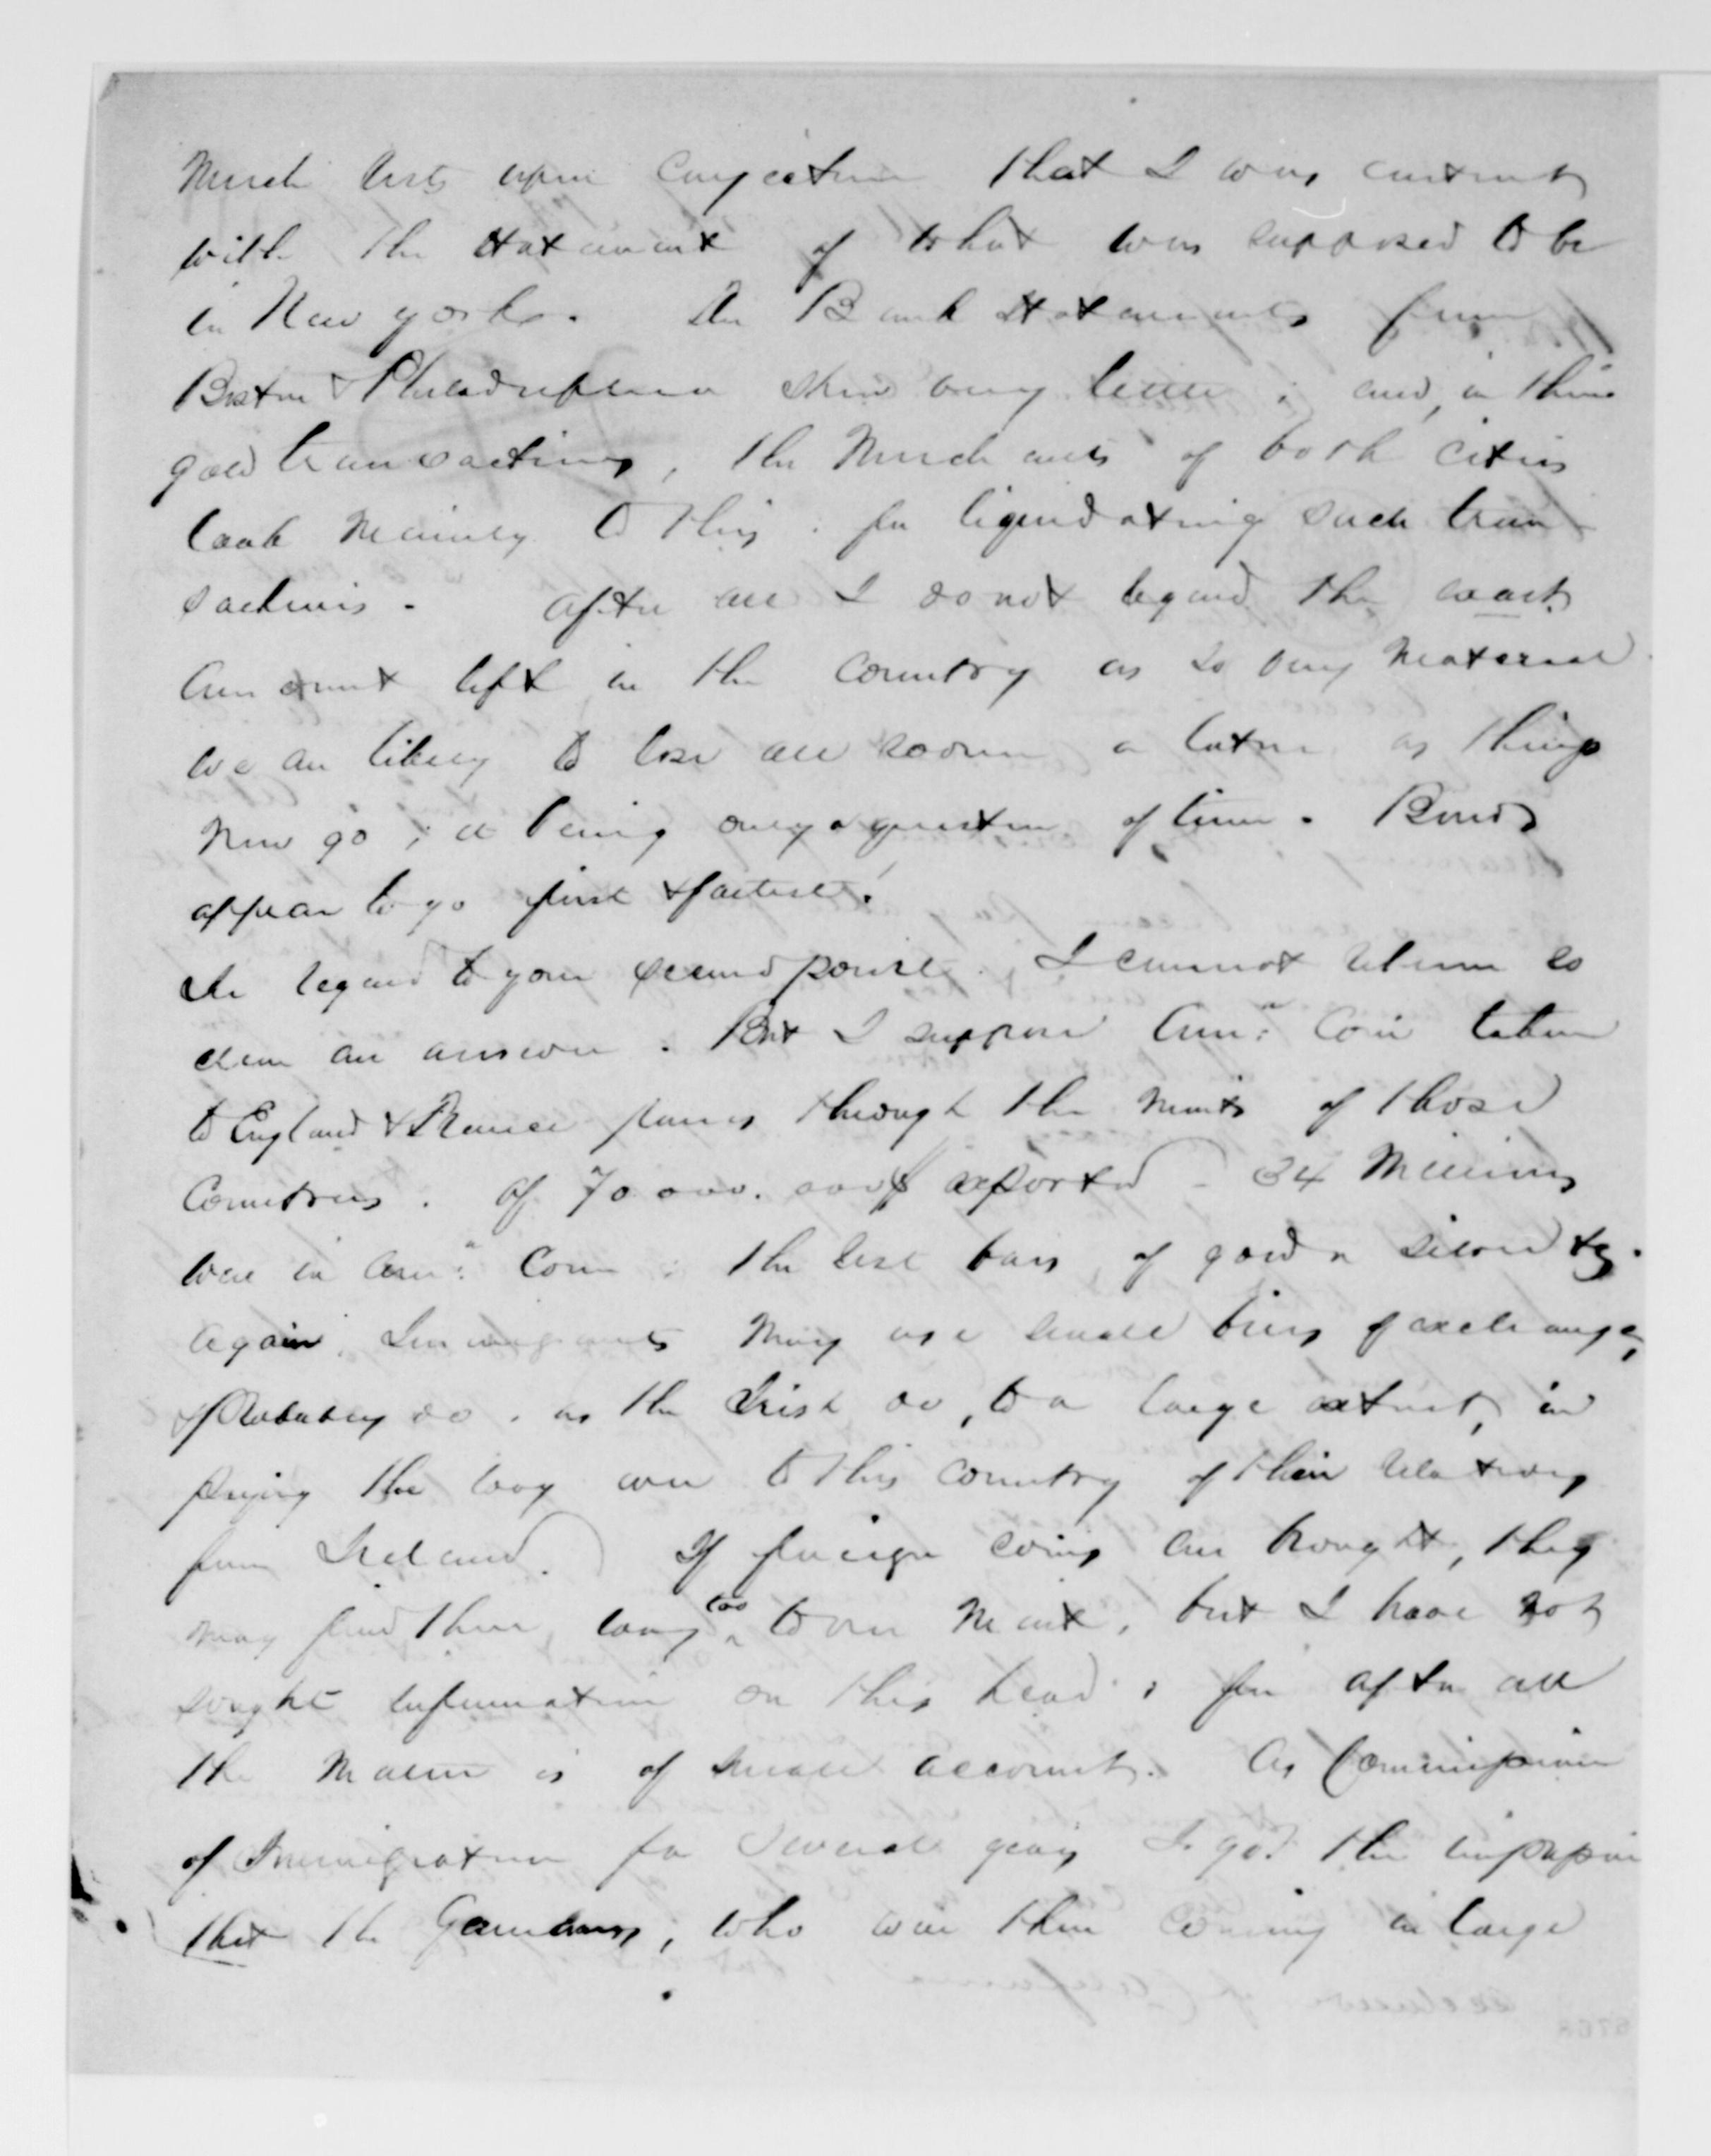 Much rests upon conjecture that I was content
with the statement of what was supposed to be
in New York. The Bank statements from
Boston & Philadelphia show very little ; and, in their
gold transactions, the Merchants of both cities
look mainly to this : for liquidating such tran
sactions. After all I do not regard the exact
amount left in the country as so very material
We are likely to lose all sooner or later as things
now go ; it being only a question of time. Bonds
appear to go first & fastest !
In regard to your second point. I cannot return so
clear an answer. But I suppose Amn: Coin taken
to England & France passes through the Mints of those
Countries. Of 70 000. 000 $ exported 34 Millions
were in Amn: Coin : the rest bars of gold or silver &c.
Again, Immigrants may use small bills of exchange,
& probably do. as the Irish do, to a large extent, in
paying the way over to this country of their relatives
from Ireland.) If foreign coins are brought, they
may find their way too to our Mint, but I have not
sought information on this head ; for after all
the matter is of small account. As Commissioner
of Immigration for several years I got the impression
that the Germans, who were then coming in large